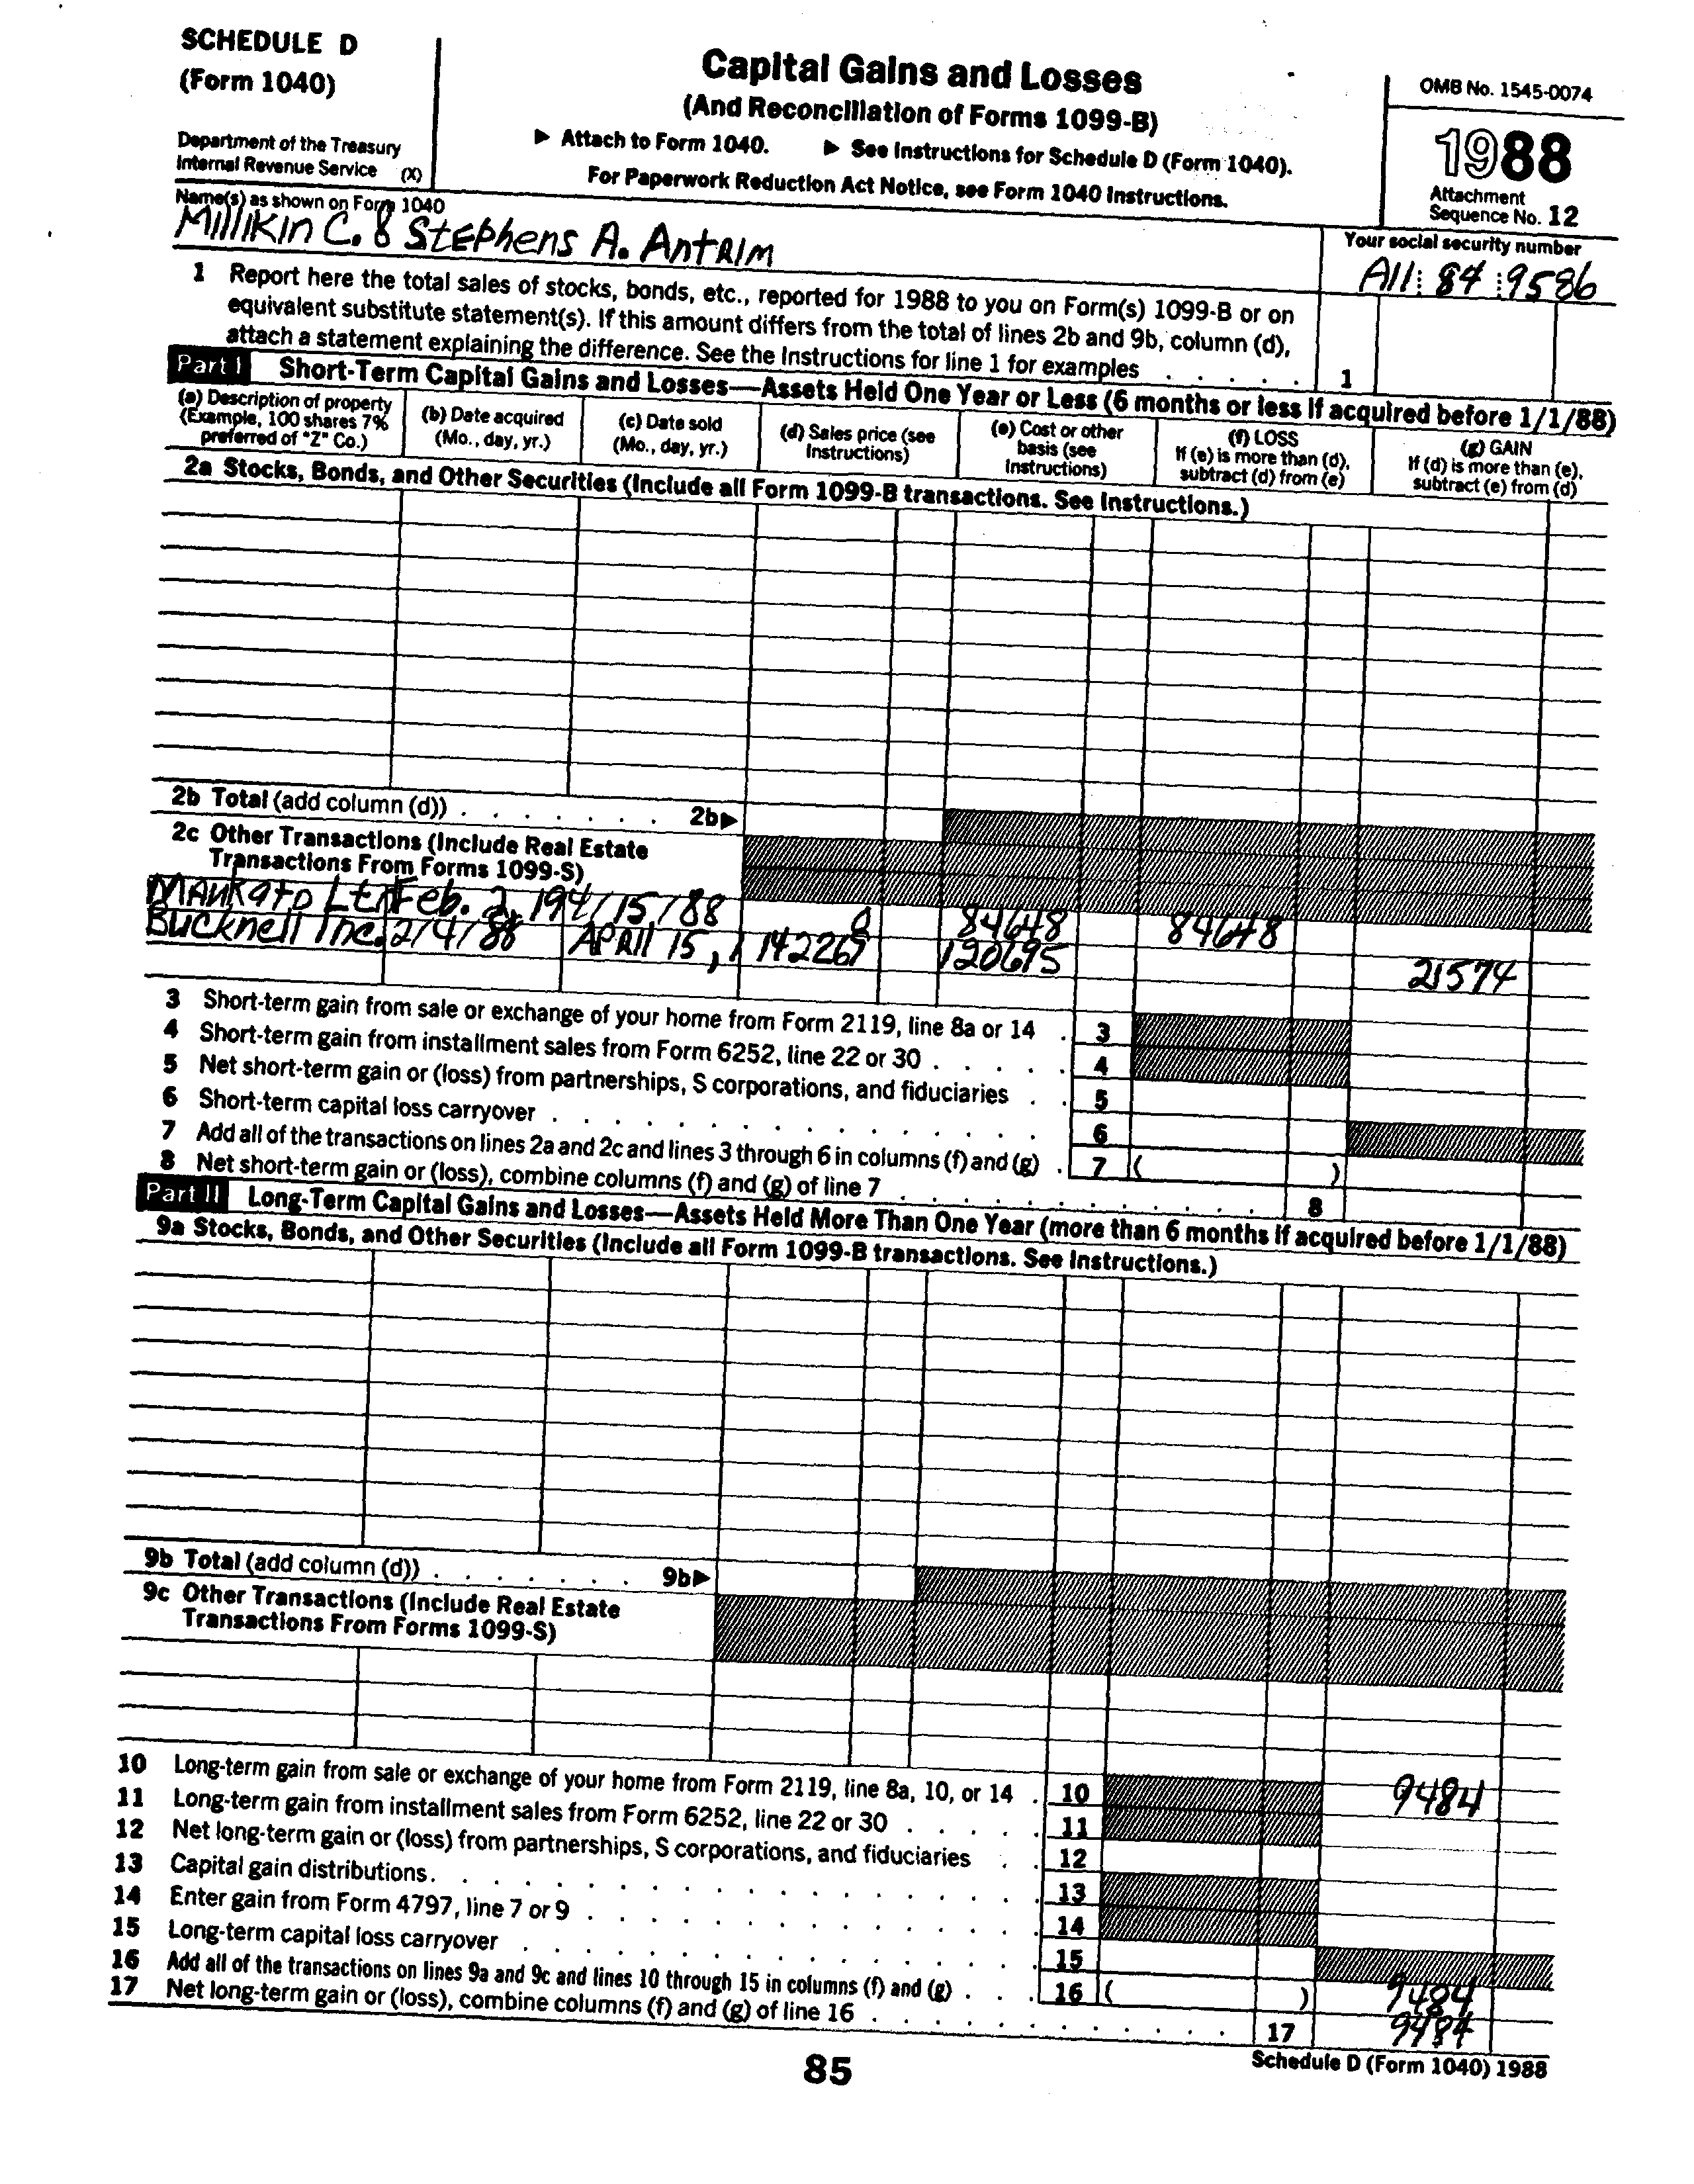 SCHEDULE D
(Form 1040)
Department of the Treasury
Internal Revenue Service (X)
Capital Gains and Losses
(And Reconciliation of Forms 1099-B)
▶ Attach to Form 1040. ▶ See Instructions for Schedule D (Form 1040).
For Paperwork Reduction Act Notice, see Form 1040 Instructions.
OMB No. 1545-0074
1988
Attachment
Sequence No. 12
Name(s) as shown on Form 1040
Millikin C. & Stephens A. Antrim
Your social security number
A11 84 9586
1 Report here the total sales of stocks, bonds, etc., reported for 1988 to you on Form(s) 1099-B or on
equivalent substitute statement(s). If this amount differs from the total of lines 2b and 9b, column (d),
attach a statement explaining the difference. See the Instructions for line 1 for examples . . . . . 1
Part I Short-Term Capital Gains and Losses—Assets Held One Year or Less (6 months or less if acquired before 1/1/88)
(a) Description of property
(Example, 100 shares 7%
preferred of "Z" Co.)
(b) Date acquired
(Mo., day, yr.)
(c) Date sold
(Mo., day, yr.)
(d) Sales price (see
Instructions)
(e) Cost or other
basis (see
Instructions)
(f) LOSS
If (e) is more than (d),
subtract (d) from (e)
(g) GAIN
If (d) is more than (e),
subtract (e) from (d)
2a Stocks, Bonds, and Other Securities (Include all Form 1099-B transactions. See Instructions.)
2b Total (add column (d)) . . . . . . . 2b▶
2c Other Transactions (Include Real Estate
Transactions From Forms 1099-S)
Mankato Lt Feb. 2, 19 4/15/88 0 84648 84648
Bucknell Inc. 2/4/88 APRIl 15, 1 142269 120695 21574
3 Short-term gain from sale or exchange of your home from Form 2119, line 8a or 14 . 3
4 Short-term gain from installment sales from Form 6252, line 22 or 30 . . . . . 4
5 Net short-term gain or (loss) from partnerships, S corporations, and fiduciaries . . 5
6 Short-term capital loss carryover . . . . . . . . . . . . . . . 6
7 Add all of the transactions on lines 2a and 2c and lines 3 through 6 in columns (f) and (g) . 7 ( )
8 Net short-term gain or (loss), combine columns (f) and (g) of line 7 . . . . . . . . . . . 8
Part II Long-Term Capital Gains and Losses—Assets Held More Than One Year (more than 6 months if acquired before 1/1/88)
9a Stocks, Bonds, and Other Securities (Include all Form 1099-B transactions. See Instructions.)
9b Total (add column (d)) . . . . . . . 9b▶
9c Other Transactions (Include Real Estate
Transactions From Forms 1099-S)
10 Long-term gain from sale or exchange of your home from Form 2119, line 8a, 10, or 14 . 10 9484
11 Long-term gain from installment sales from Form 6252, line 22 or 30 . . . . . 11
12 Net long-term gain or (loss) from partnerships, S corporations, and fiduciaries . . 12
13 Capital gain distributions. . . . . . . . . . . . . . . . . . . 13
14 Enter gain from Form 4797, line 7 or 9 . . . . . . . . . . . . . . 14
15 Long-term capital loss carryover . . . . . . . . . . . . . . . . 15
16 Add all of the transactions on lines 9a and 9c and lines 10 through 15 in columns (f) and (g) . . . 16 ( ) 9484
17 Net long-term gain or (loss), combine columns (f) and (g) of line 16 . . . . . . . . . . . . 17 9484
85
Schedule D (Form 1040) 1988